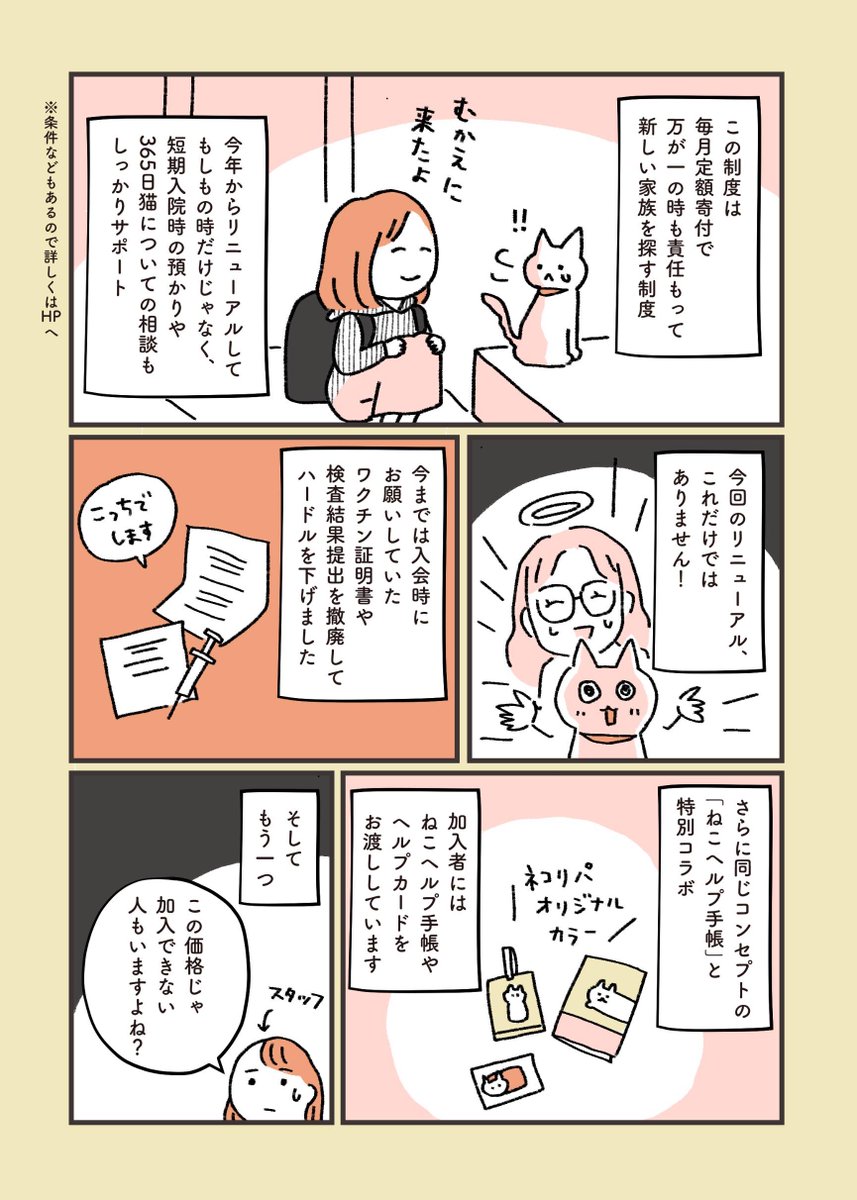 この制度は
毎月定額寄付で
万が一の時も責任もって
新しい家族を探す制度
!!
むかえに
来たよ
今年からリニューアルして
もしもの時だけじゃなく、
短期入院時の預かりや
365日猫についての相談も
しっかりサポート
※条件などもあるので詳しくはHPへ
今回のリニューアル、
これだけでは
ありません!
今までは入会時に
お願いしていた
ワクチン証明書や
検査結果提出を撤廃して
ハードルを下げました
こっちで
します
さらに同じコンセプトの
「ねこヘルプ手帳」と
特別コラボ
ネコリパ
オリジナル
カラー
加入者には
ねこヘルプ手帳や
ヘルプカードを
お渡ししています
そして
もう一つ
この価格じゃ
加入できない
人もいますよね?
スタッフ